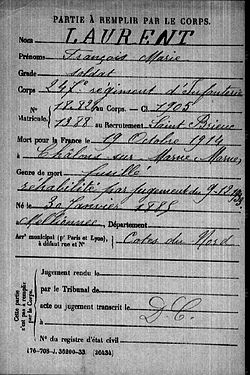 PARTIE À REMPLIR PAR LE CORPS.
Nom LAURENT
Prénoms François Marie
Grade soldat
Corps 247e régiment d'Infanterie
N° 18.826 au Corps. — Cl. 1905
Matricule. 1388 au Recrutement Saint Brieuc
Mort pour la France le 19 Octobre 1914
à Châlons sur Marne, Marne,
Genre de mort fusillé
réhabilité par jugement du 9.12
Né le 30 Janvier 1885
à Mellionnec, Département
Arrt municipal (pr Paris et Lyon), à défaut rue et N°
Cotes du Nord
Cette partie n'est pas à remplir par le Corps.
Jugement rendu le
par le Tribunal de
acte ou jugement transcrit le D.C.
à
N° du registre d'état civil